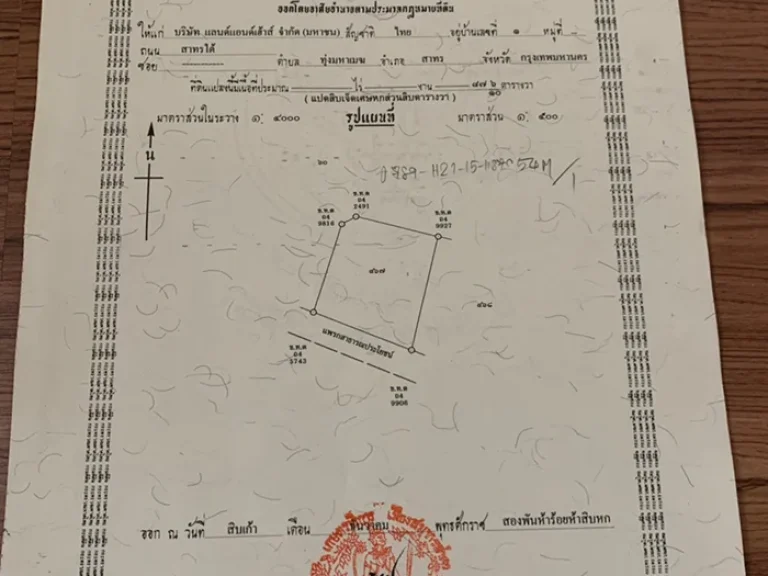 ออกโดยอาศัยอำนาจตามประมวลกฎหมายที่ดิน
ให้แก่ บริษัท แลนด์แอนด์เฮ้าส์ จำกัด (มหาชน) สัญชาติ ไทย อยู่บ้านเลขที่ ๑ หมู่ที่ -
ถนน สาทรใต้
ซอย ------------ ตำบล ทุ่งมหาเมฆ อำเภอ สาทร จังหวัด กรุงเทพมหานคร
ที่ดินแปลงนี้มีเนื้อที่ประมาณ ไร่ งาน ๘๗ ๖/๑๐ ตารางวา
( แปดสิบเจ็ดเศษหกส่วนสิบตารางวา )
มาตราส่วนในระวาง ๑: ๔๐๐๐ รูปแผนที่ มาตราส่วน ๑: ๕๐๐
น
๖๐
ข.ท.ด
04
2491
ข.ท.ด
04
9816
ข.ท.ด
04
9927
๔๖๗
๔๖๘
แพรกสาธารณประโยชน์
ข.ท.ด
04
5743
ข.ท.ด
04
9906
ออก ณ วันที่ สิบเก้า เดือน ธันวาคม พุทธศักราช สองพันห้าร้อยห้าสิบหก